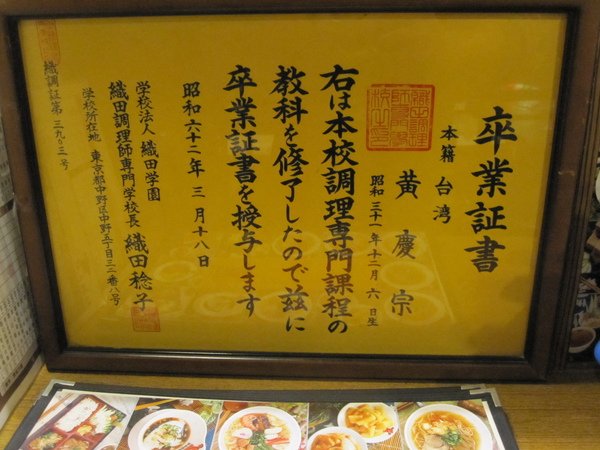 卒業証書
本籍 台湾
黄慶宗
昭和三十一年十二月六日生
右は本校調理専門課程の
教科を修了したので茲に
卒業証書を授与します
昭和六十二年三月十八日
学校法人 織田学園
織田調理師専門学校長 織田稔子
学校所在地 東京都中野区中野五丁目三二番八号
織調証第三九〇三号